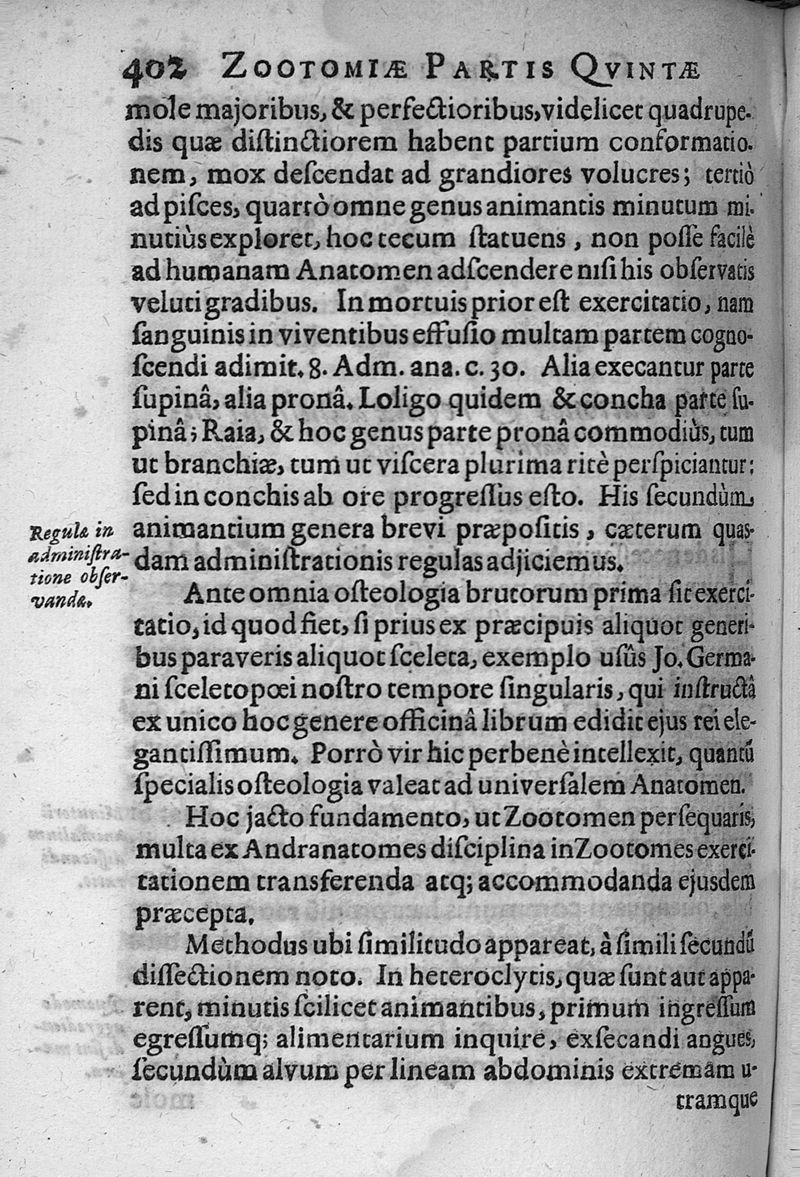 402 ZOOTOMIÆ PARTIS QVINTÆ
mole majoribus, & perfectioribus, videlicet quadrupe-
dis quæ diſtinctiorem habent partium conformatio-
nem, mox deſcendat ad grandiores volucres; tertiò
ad piſces, quartò omne genus animantis minutum mi-
nutiùs exploret, hoc tecum ſtatuens, non poſſe facilè
ad humanam Anatomen adſcendere niſi his obſervatis
veluti gradibus. In mortuis prior eſt exercitatio, nam
ſanguinis in viventibus effuſio multam partem cogno-
ſcendi adimit. 8. Adm. ana. c. 30. Alia execantur parte
ſupinâ, alia pronâ. Loligo quidem & concha parte ſu-
pinâ; Raia, & hoc genus parte pronâ commodiùs, tum
ut branchiæ, tum ut viſcera plurima ritè perſpiciantur:
ſed in conchis ab ore progreſſus eſto. His ſecundùm
Regulæ in
adminiſtra-
tione obſer-
vandæ.
animantium genera brevi præpoſitis, cæterum quas-
dam adminiſtrationis regulas adjiciemus.
Ante omnia oſteologia brutorum prima ſit exerci-
tatio, id quod fiet, ſi prius ex præcipuis aliquot generi-
bus paraveris aliquot ſceleta, exemplo uſûs Jo. Germa-
ni ſceletopœi noſtro tempore ſingularis, qui inſtructâ
ex unico hoc genere officinâ librum edidit ejus rei ele-
gantiſſimum. Porrò vir hic perbenè intellexit, quantũ
ſpecialis oſteologia valeat ad univerſalem Anatomen.
Hoc jacto fundamento, ut Zootomen perſequaris,
multa ex Andranatomes diſciplina in Zootomes exerci-
tationem transferenda atq; accommodanda ejusdem
præcepta.
Methodus ubi ſimilitudo appareat, à ſimili ſecundũ
diſſectionem noto. In heteroclytis, quæ ſunt aut appa-
rent, minutis ſcilicet animantibus, primum ingreſſum
egreſſumq; alimentarium inquire, exſecandi angues,
ſecundùm alvum per lineam abdominis extremam u-
tramque